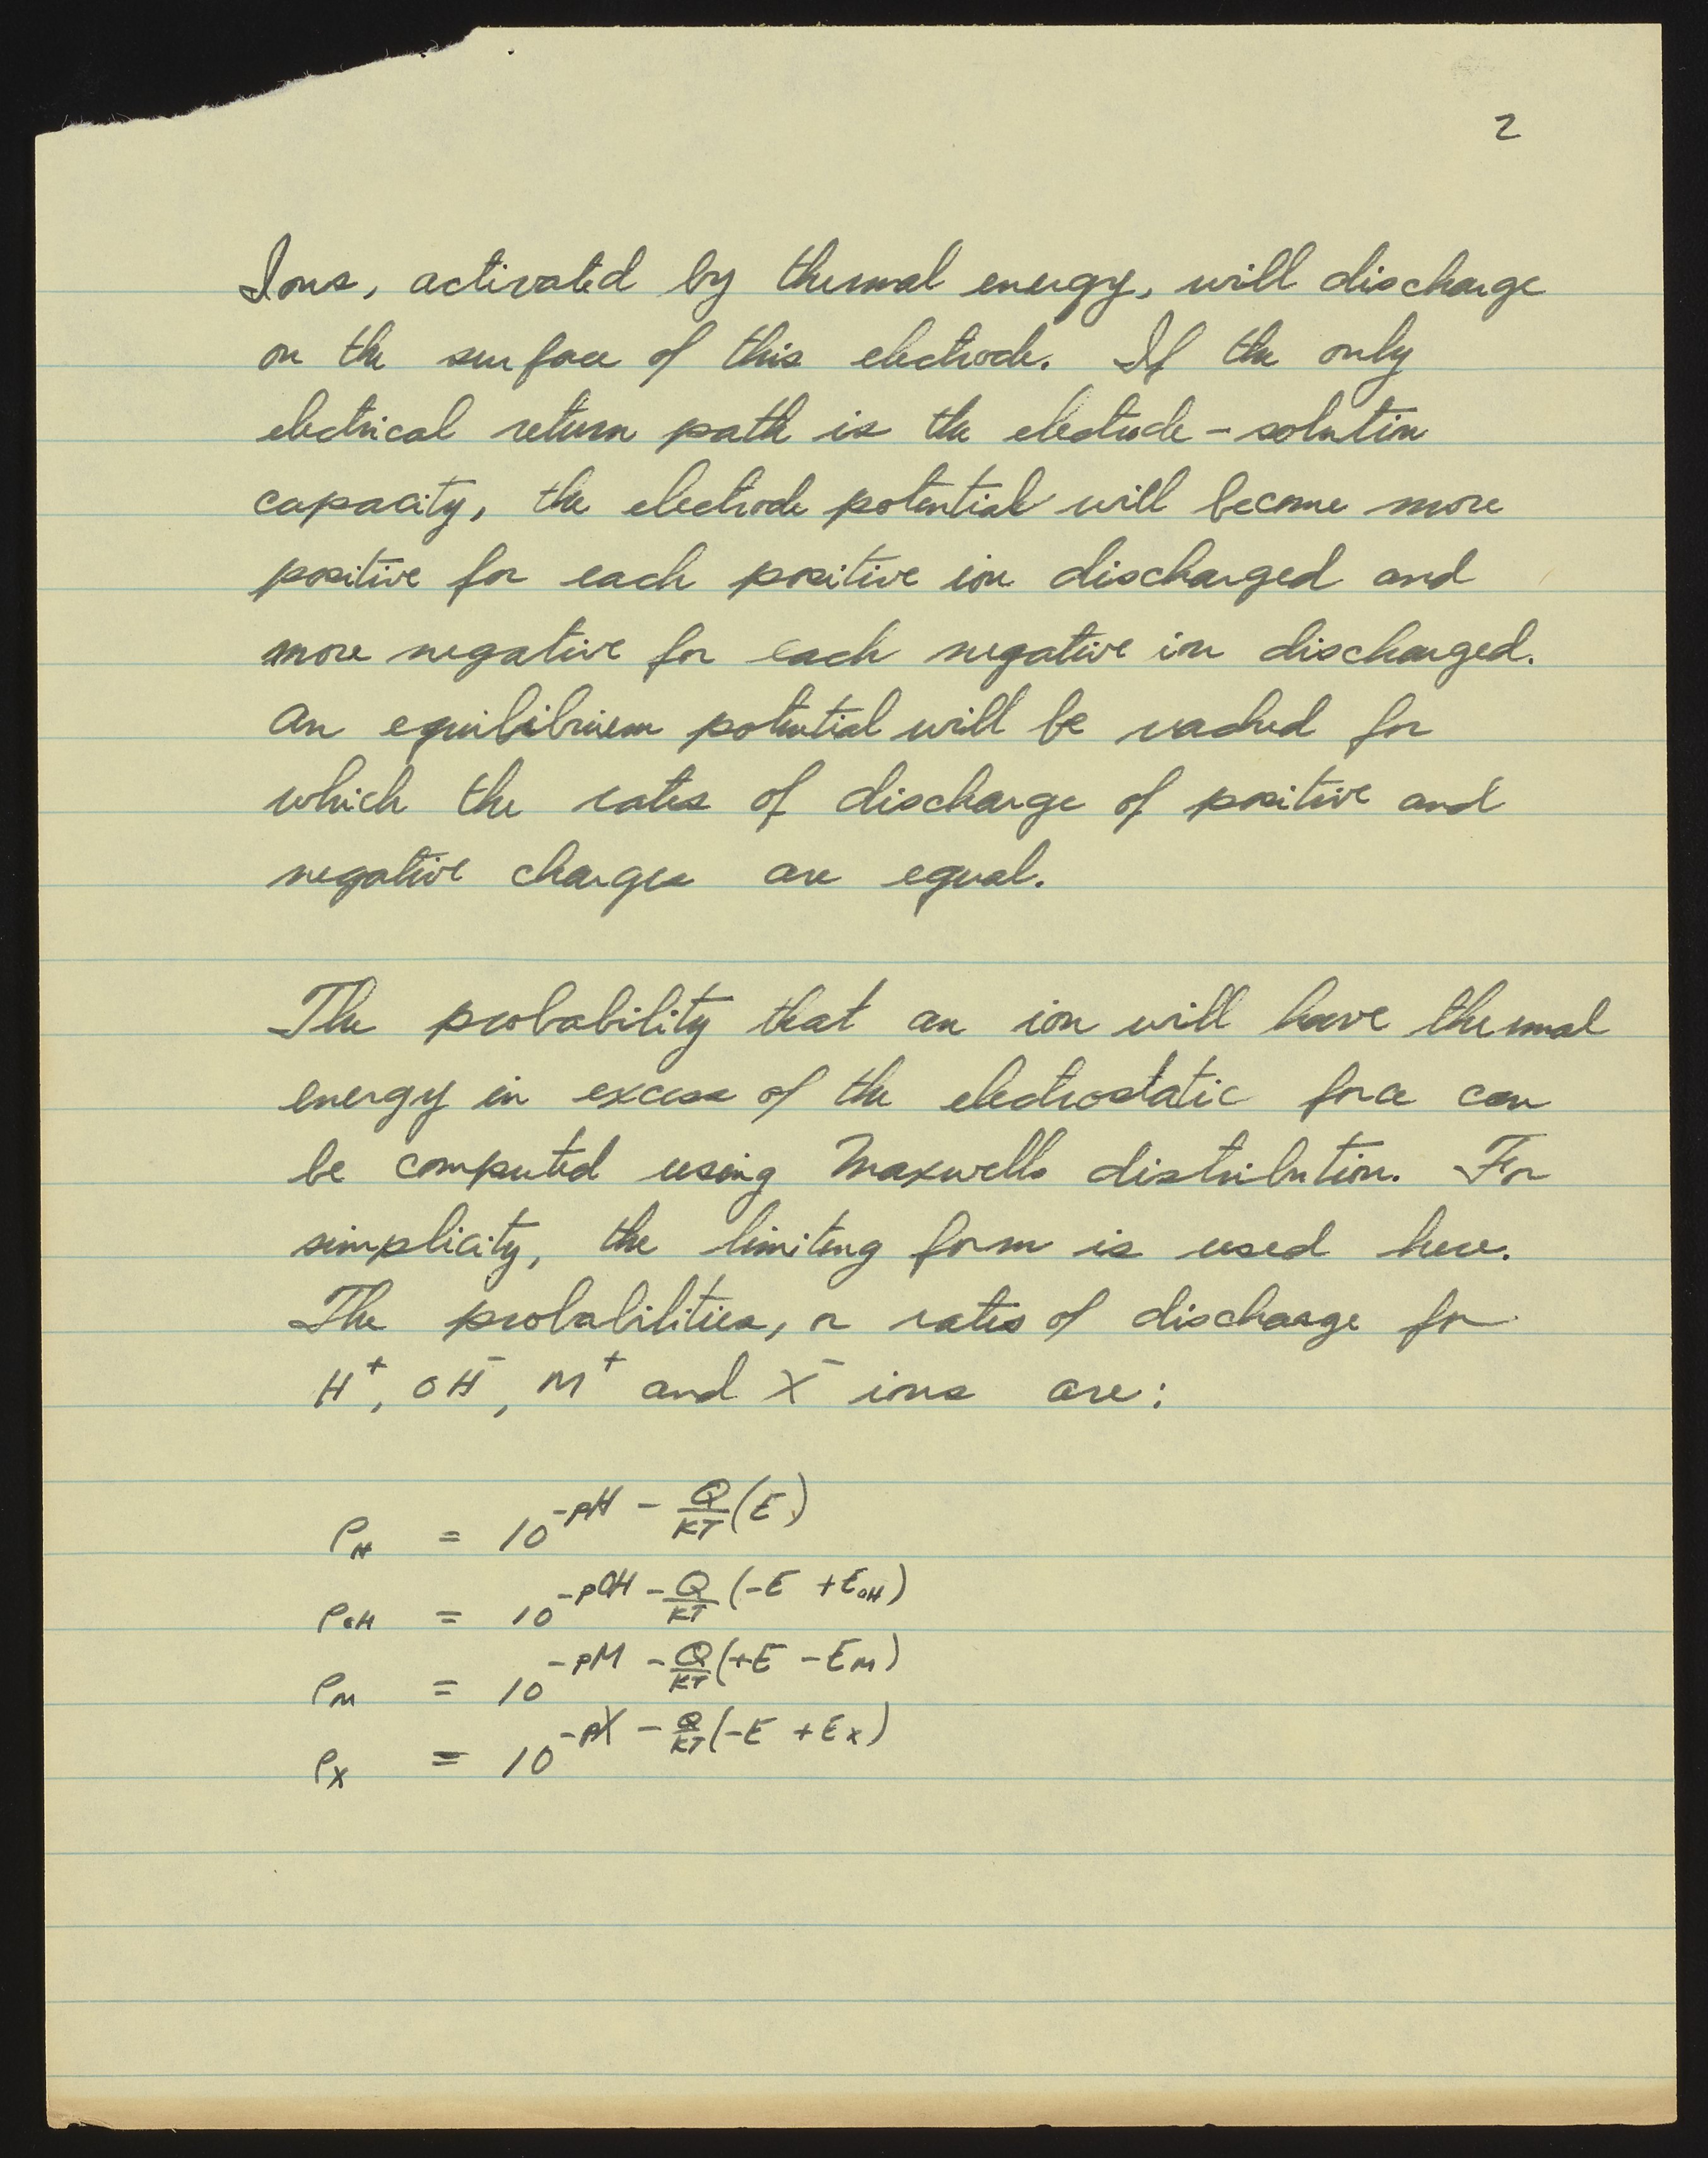 2
Ions, activated by thermal energy, will discharge
on the surface of this electrode. If the only
electrical return path is the electrode - solution
capacity, the electrode potential will become more
positive for each positive ion discharged and
more negative for each negative ion discharged.
An equilibrium potential will be reached for
which the rates of discharge of positive and
negative charges are equal.
The probability that an ion will have thermal
energy in excess of the electrostatic force can
be computed using Maxwells distribution. For
simplicity, the limiting form is used here.
The probabilities, or rates of discharge for
H⁺, OH⁻, M⁺ and X⁻ ions are:
ρ_H = 10^{-pH - Q/KT (E)}
ρ_OH = 10^{-pOH - Q/KT (-E + E_OH)}
ρ_M = 10^{-pM - Q/KT (+E - E_M)}
ρ_X = 10^{-pX - Q/KT (-E + E_X)}